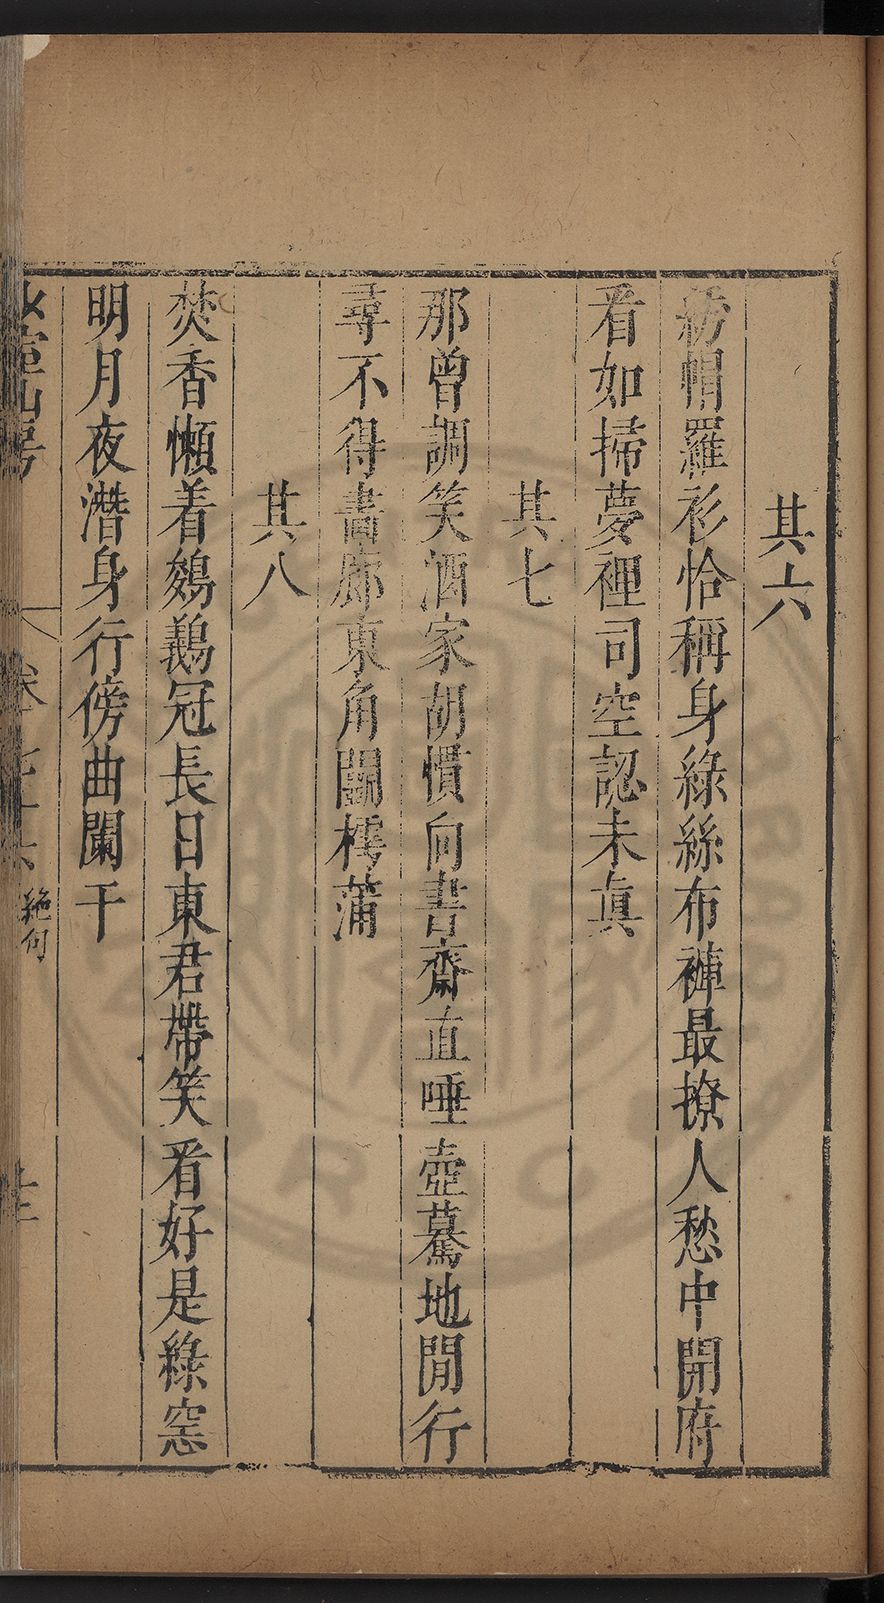 其六
紡帽羅衫恰稱身綠絲布褲最撩人愁中開府
看如掃夢裡司空認未真
其七
那曾調笑酒家胡慣向書齋直唾壺驀地閒行
尋不得書廊東角鬭樗蒲
其八
焚香懶着鵕鸃冠長日東君帶笑看好是綠窓
明月夜潛身行傍曲闌干
山房
卷之十六
絶句